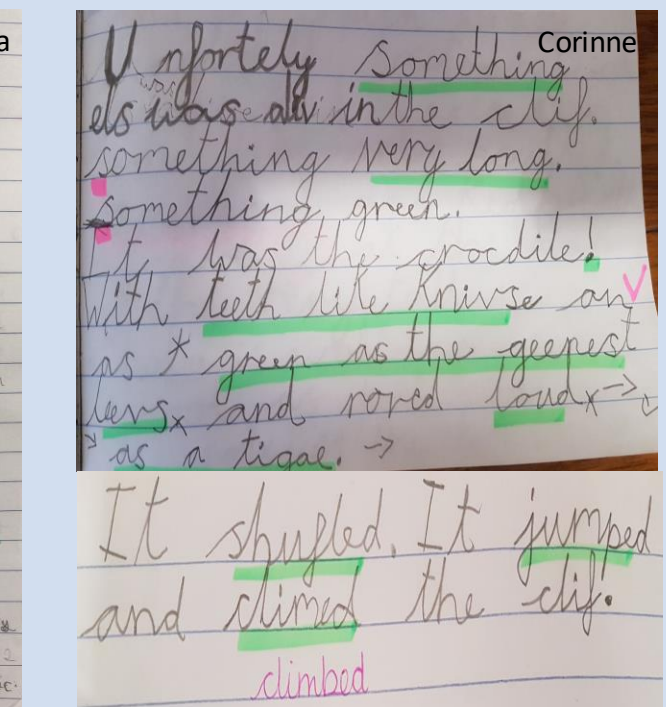 Corinne
Unfortely something
els was aliv in the clif.
something very long.
Something green.
It was the crocdile!
With teeth like Knivse an
as * green as the geenest
levs x and rored loud x →
as a tigae. →
It shufled. It jumped
and climed the clif!
climbed